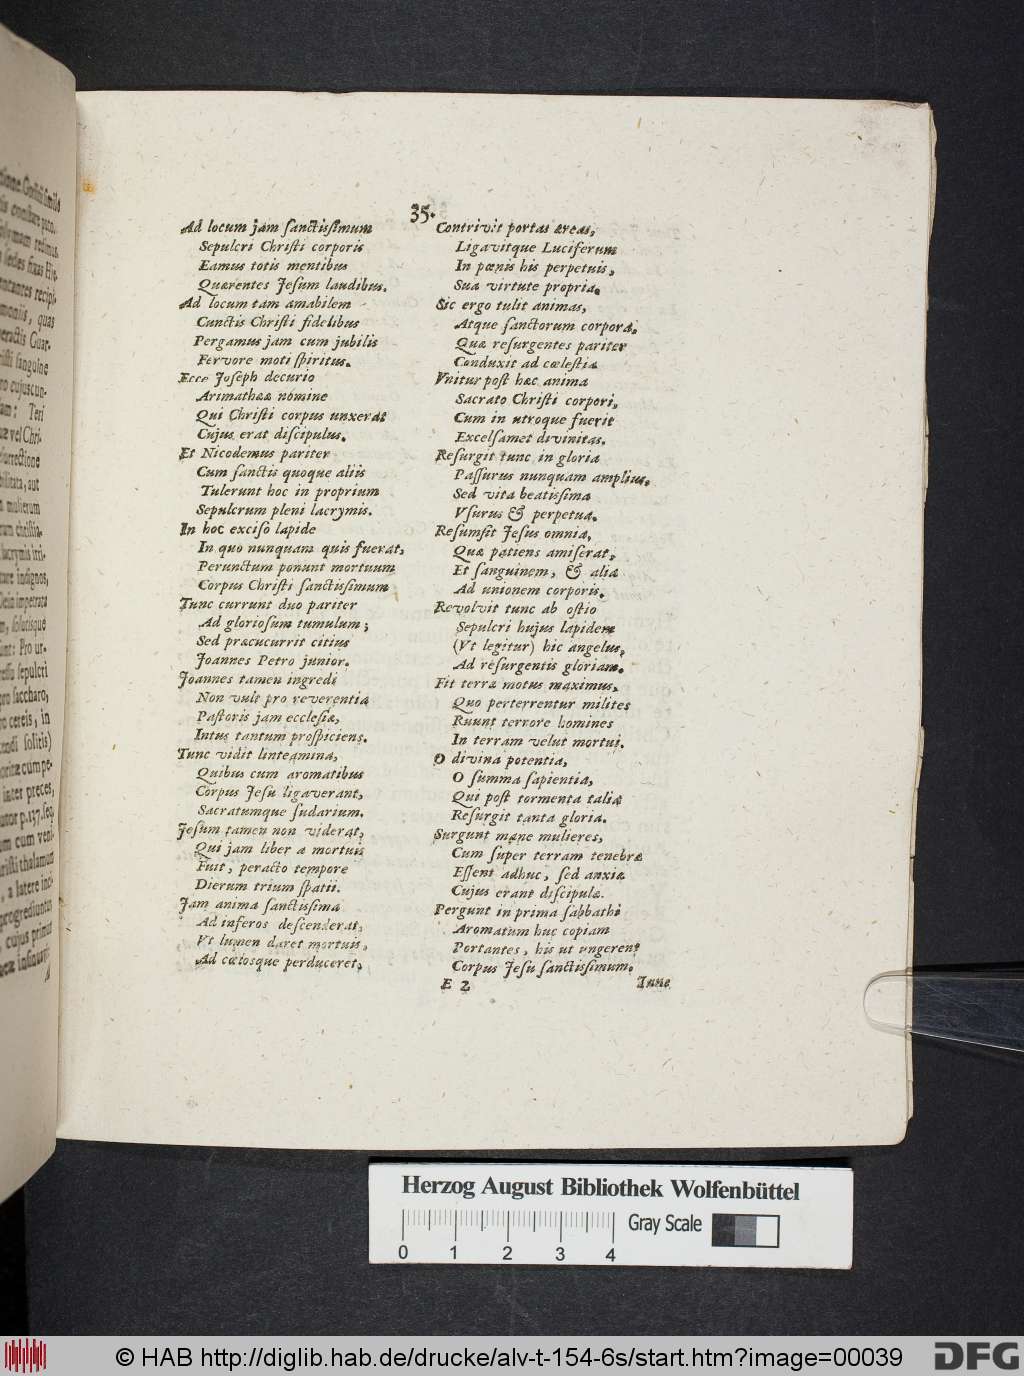 35.
Ad locum jam sanctissimum
Sepulcri Christi corporis
Eamus totis mentibus
Quærentes Jesum laudibus.
Ad locum tam amabilem
Cunctis Christi fidelibus
Pergamus jam cum jubilis
Fervore moti spiritus.
Ecce Joseph decurio
Arimathææ nomine
Qui Christi corpus unxerat
Cujus erat discipulus.
Et Nicodemus pariter
Cum sanctis quoque aliis
Tulerunt hoc in proprium
Sepulcrum pleni lacrymis.
In hoc exciso lapide
In quo nunquam quis fuerat,
Perunctum ponunt mortuum
Corpus Christi sanctissimum
Tunc currunt duo pariter
Ad gloriosum tumulum;
Sed præcucurrit citius
Joannes Petro junior.
Joannes tamen ingredi
Non vult pro reverentia
Pastoris jam ecclesiæ,
Intus tantum prospiciens.
Tunc vidit linteamina,
Quibus cum aromatibus
Corpus Jesu ligaverant,
Sacratumque sudarium.
Jesum tamen non viderat,
Qui jam liber a mortuis
Fuit, peracto tempore
Dierum trium spatii.
Jam anima sanctissima
Ad inferos descenderat,
Vt lumen daret mortuis,
Ad cœlosque perduceret,
Contrivit portas æreas,
Ligavitque Luciferum
In pœnis his perpetuis,
Sua virtute propria.
Sic ergo tulit animas,
Atque sanctorum corpora,
Quæ resurgentes pariter
Conduxit ad cœlestia
Vnitur post hæc anima
Sacrato Christi corpori,
Cum in utroque fuerit
Excelsamet divinitas.
Resurgit tunc in gloria
Passurus nunquam amplius,
Sed vita beatissima
Vsurus & perpetua.
Resumsit Jesus omnia,
Quæ patiens amiserat,
Et sanguinem, & alia
Ad unionem corporis.
Revolvit tunc ab ostio
Sepulcri hujus lapidem
(Vt legitur) hic angelus,
Ad resurgentis gloriam.
Fit terræ motus maximus,
Quo perterrentur milites
Ruunt terrore homines
In terram velut mortui.
O divina potentia,
O summa sapientia,
Qui post tormenta talia
Resurgit tanta gloria.
Surgunt mane mulieres,
Cum super terram tenebræ
Essent adhuc, sed anxiæ
Cujus erant discipulæ.
Pergunt in prima sabbathi
Aromatum huc copiam
Portantes, his ut ungerent
Corpus Jesu sanctissimum.
E 2 Tunc
Herzog August Bibliothek Wolfenbüttel
Gray Scale
0 1 2 3 4
© HAB http://diglib.hab.de/drucke/alv-t-154-6s/start.htm?image=00039
DFG